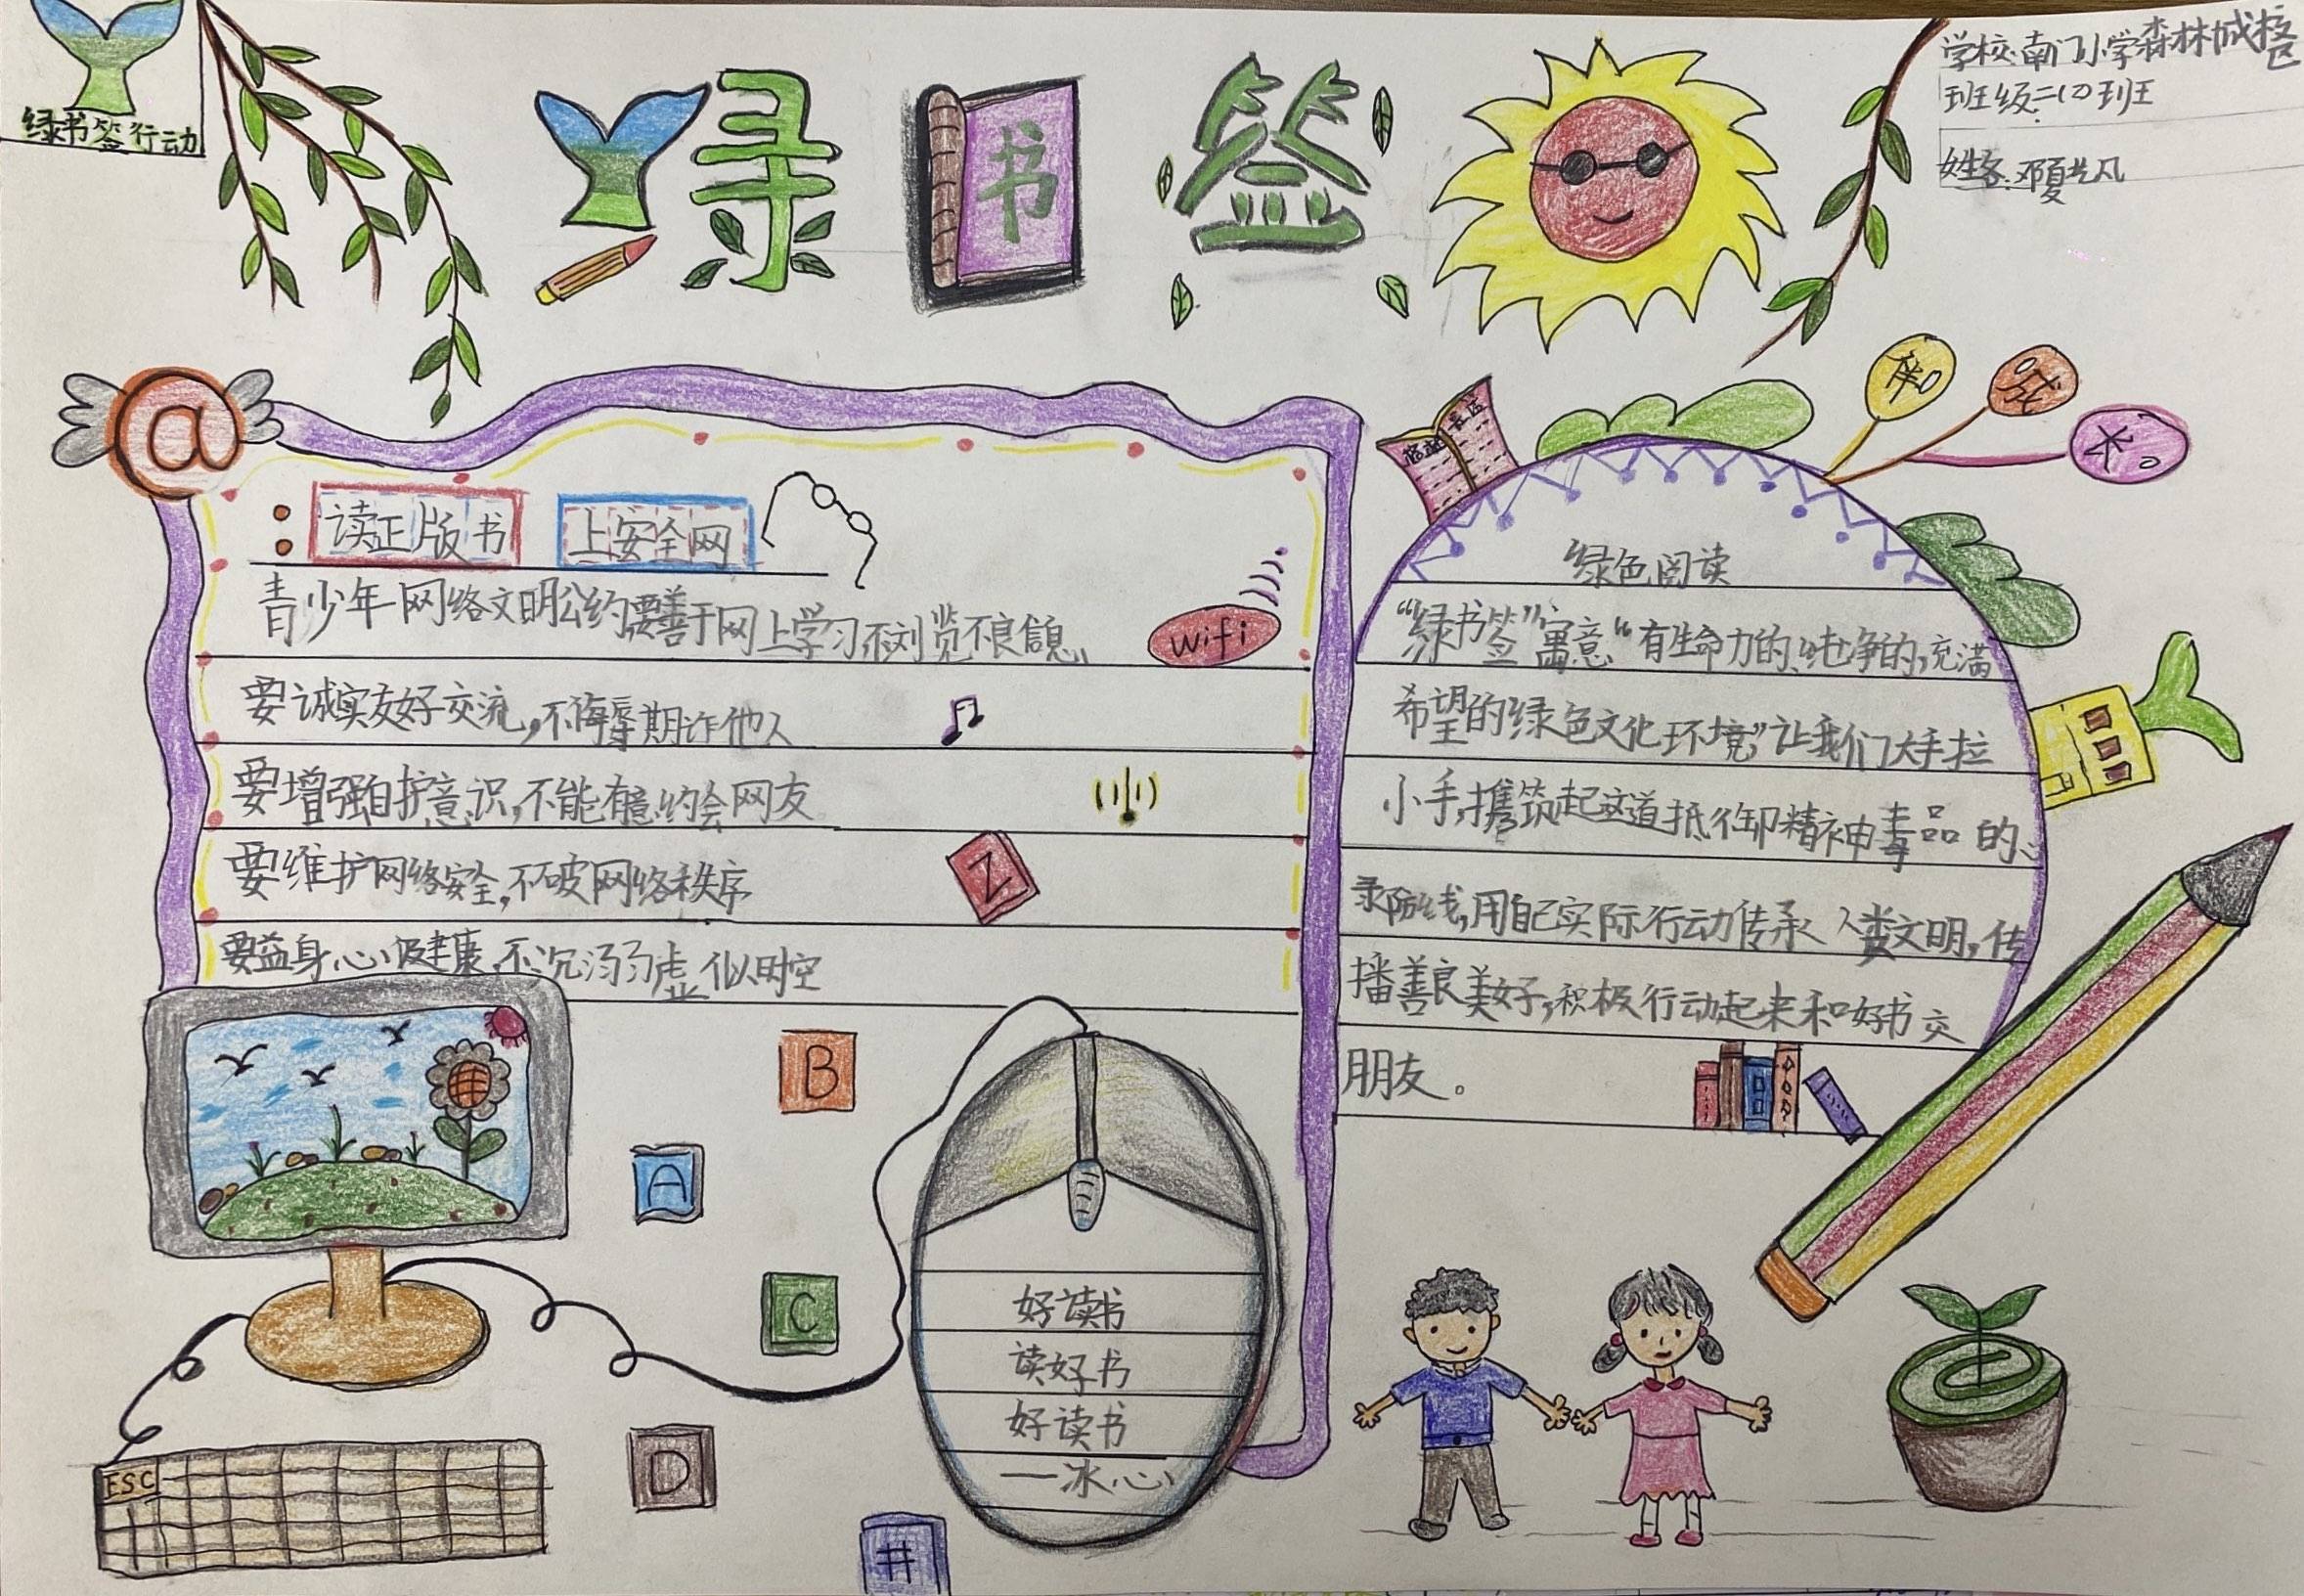 绿书签行动
绿书签
学校:南门小学森林城校区
班级:二(2)班
姓名:邓夏艺凡
@
伴
成
长。
:读正版书 上安全网
青少年网络文明公约要善于网上学习不浏览不良信息
wifi
要诚实友好交流,不侮辱期诈他人
要增强自护意识,不能有意约会网友
要维护网络安全,不破网络秩序
Z
要益身心健康,不沉溺虚似时空
绿色阅读
“绿书签”寓意“有生命力的、纯净的,充满
希望的绿色文化环境,”让我们大手拉
小手,携筑起这道抵御精神毒品的
录防线,用自己实际行动传承人类文明,传
播善良美好,积极行动起来和好书交
朋友。
B
A
C
D
#
ESC
好读书
读好书
好读书
——冰心